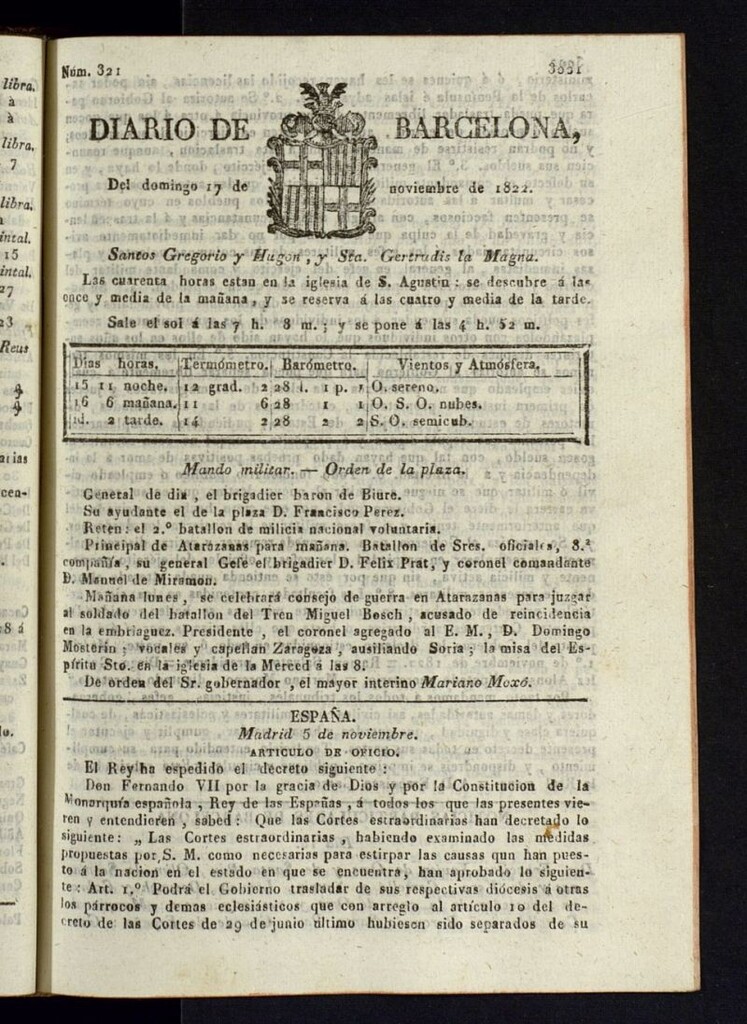 libra.
à
à
libra.
7
libra.
intal.
15
intal.
27
23
Reus
8 á
Núm. 321
DIARIO DE BARCELONA,
Del domingo 17 de noviembre de 1822.
Santos Gregorio y Hugon, y Sta. Gertrudis la Magna.
Las cuarenta horas estan en la iglesia de S. Agustin: se descubre á las
once y media de la mañana, y se reserva á las cuatro y media de la tarde.
Sale el sol á las 7 h. 8 m.; y se pone á las 4 h. 52 m.
Dias horas. Termómetro. Barómetro. Vientos y Atmósfera.
15 11 noche. 12 grad. 2 28 l. 1 p. 1 O. sereno.
16 6 mañana. 11 6 28 1 1 O. S. O. nubes.
id. 2 tarde. 14 2 28 2 2 S. O. semicub.
Mando militar. — Orden de la plaza.
General de dia, el brigadier baron de Biure.
Su ayudante el de la plaza D. Francisco Perez.
Reten: el 2.º batallon de milicia nacional voluntaria.
Principal de Atarazanas para mañana. Batallon de Sres. oficiales, 8.ª
compañía, su general Gefe el brigadier D. Felix Prat, y coronel comandante
D. Manuel de Miramon.
Mañana lunes, se celebrará consejo de guerra en Atarazanas para juzgar
al soldado del batallon del Tren Miguel Bosch, acusado de reincidencia
en la embriaguez. Presidente, el coronel agregado al E. M., D. Domingo
Mosterin; vocales y capellan Zaragoza, ausiliando Soria; la misa del Es-
píritu Sto. en la iglesia de la Merced á las 8.
De orden del Sr. gobernador, el mayor interino Mariano Moxó.
ESPAÑA.
Madrid 5 de noviembre.
ARTICULO DE OFICIO.
El Rey ha espedido el decreto siguiente:
Don Fernando VII por la gracia de Dios y por la Constitucion de la
Monarquía española, Rey de las Españas, á todos los que las presentes vie-
ren y entendieren, sabed: Que las Córtes estraordinarias han decretado lo
siguiente: „ Las Cortes estraordinarias, habiendo examinado las medidas
propuestas por S. M. como necesarias para estirpar las causas qun han pues-
to á la nacion en el estado en que se encuentra, han aprobado lo siguien-
te: Art. 1.º Podrá el Gobierno trasladar de sus respectivas diócesis á otras
los párrocos y demas eclesiásticos que con arreglo al artículo 10 del de-
creto de las Cortes de 29 de junio último hubiesen sido separados de su